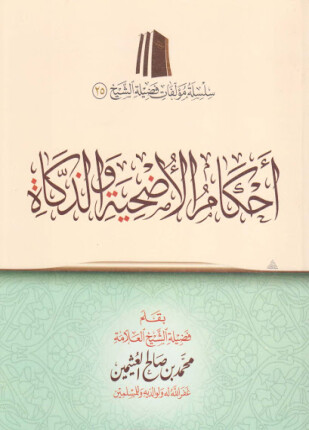 سلسلة مؤلفات فضيلة الشيخ (٢٥)
أحكام الأضحية والذكاة
بقلم
فضيلة الشيخ العلامة
محمد بن صالح العثيمين
غفر الله له ولوالديه وللمسلمين